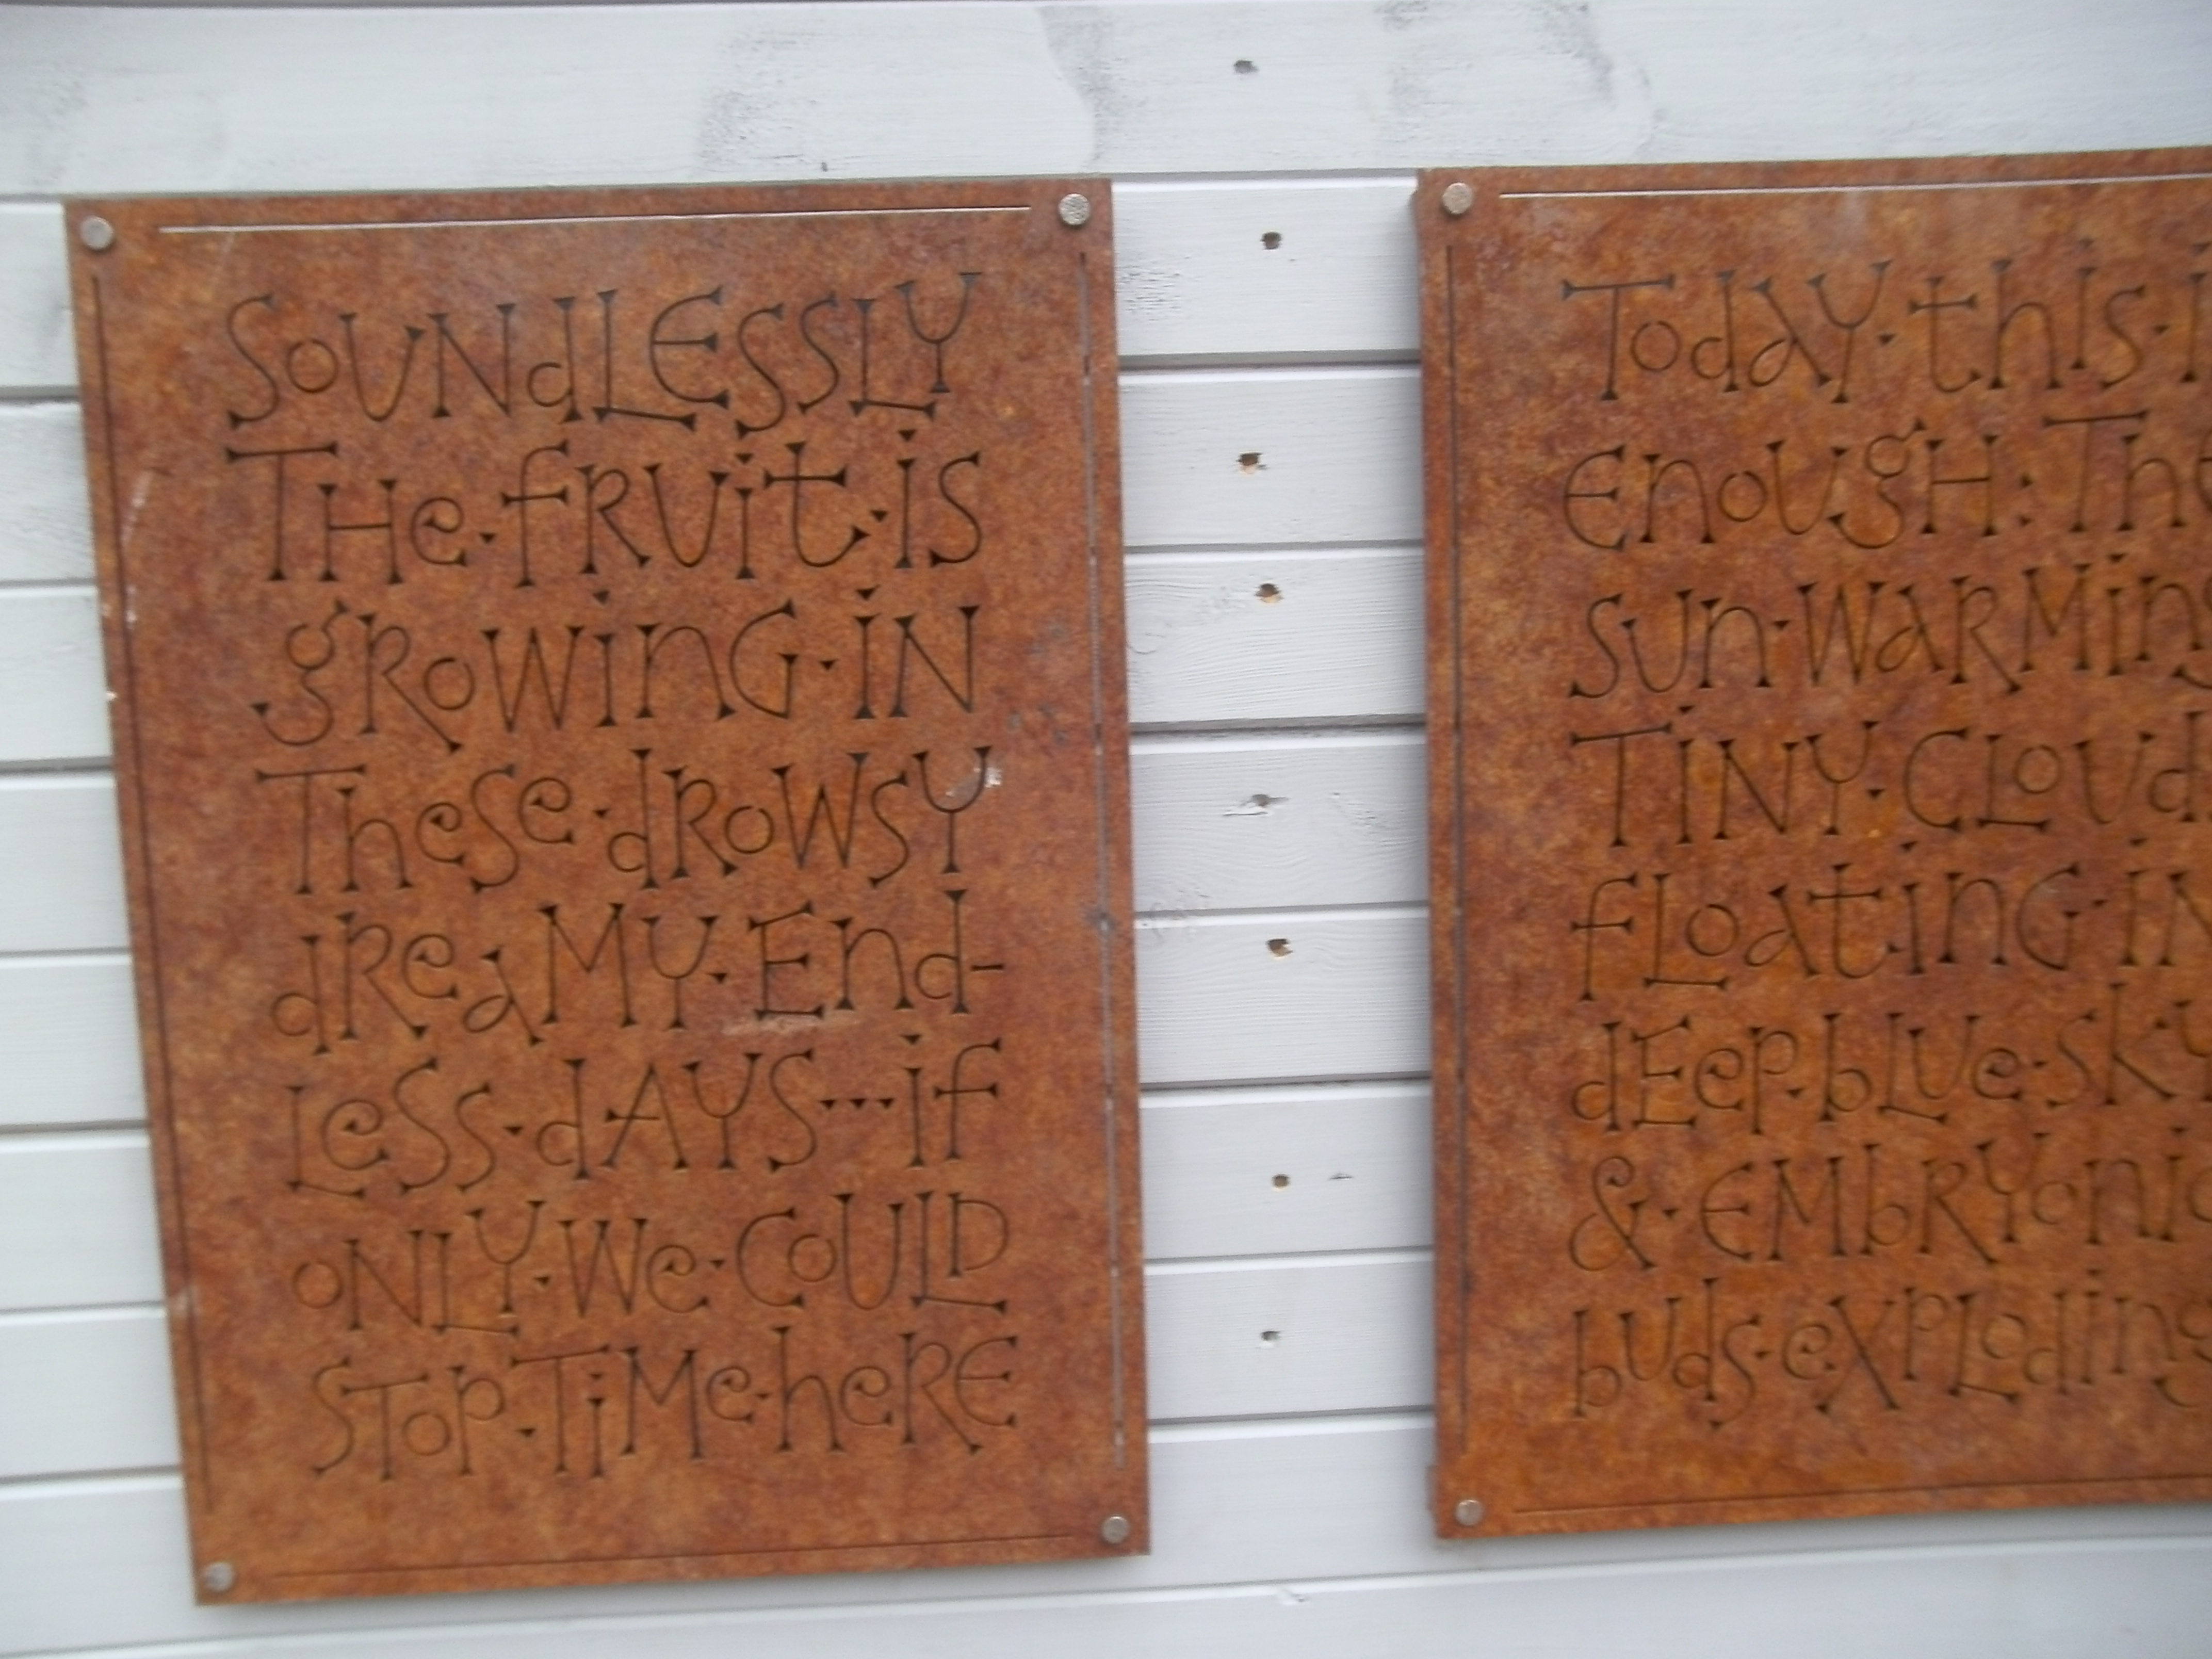 SoUNdLESSLY
THe·fRUit·iS
gRoWinG·iN
TheSe·dRoWSY
dReaMY·End-
LeSS·dAYS···if
oNLY·We·CoULD
SToP·TiMe·heRE
TodaY·thiS·
EnoUgH:
SUn·WaRMing
TiNY·CLoUd
fLoatinG·iN
dEeP·bLUe·SkY
&·EMbRYonic
budS·eXPLoding